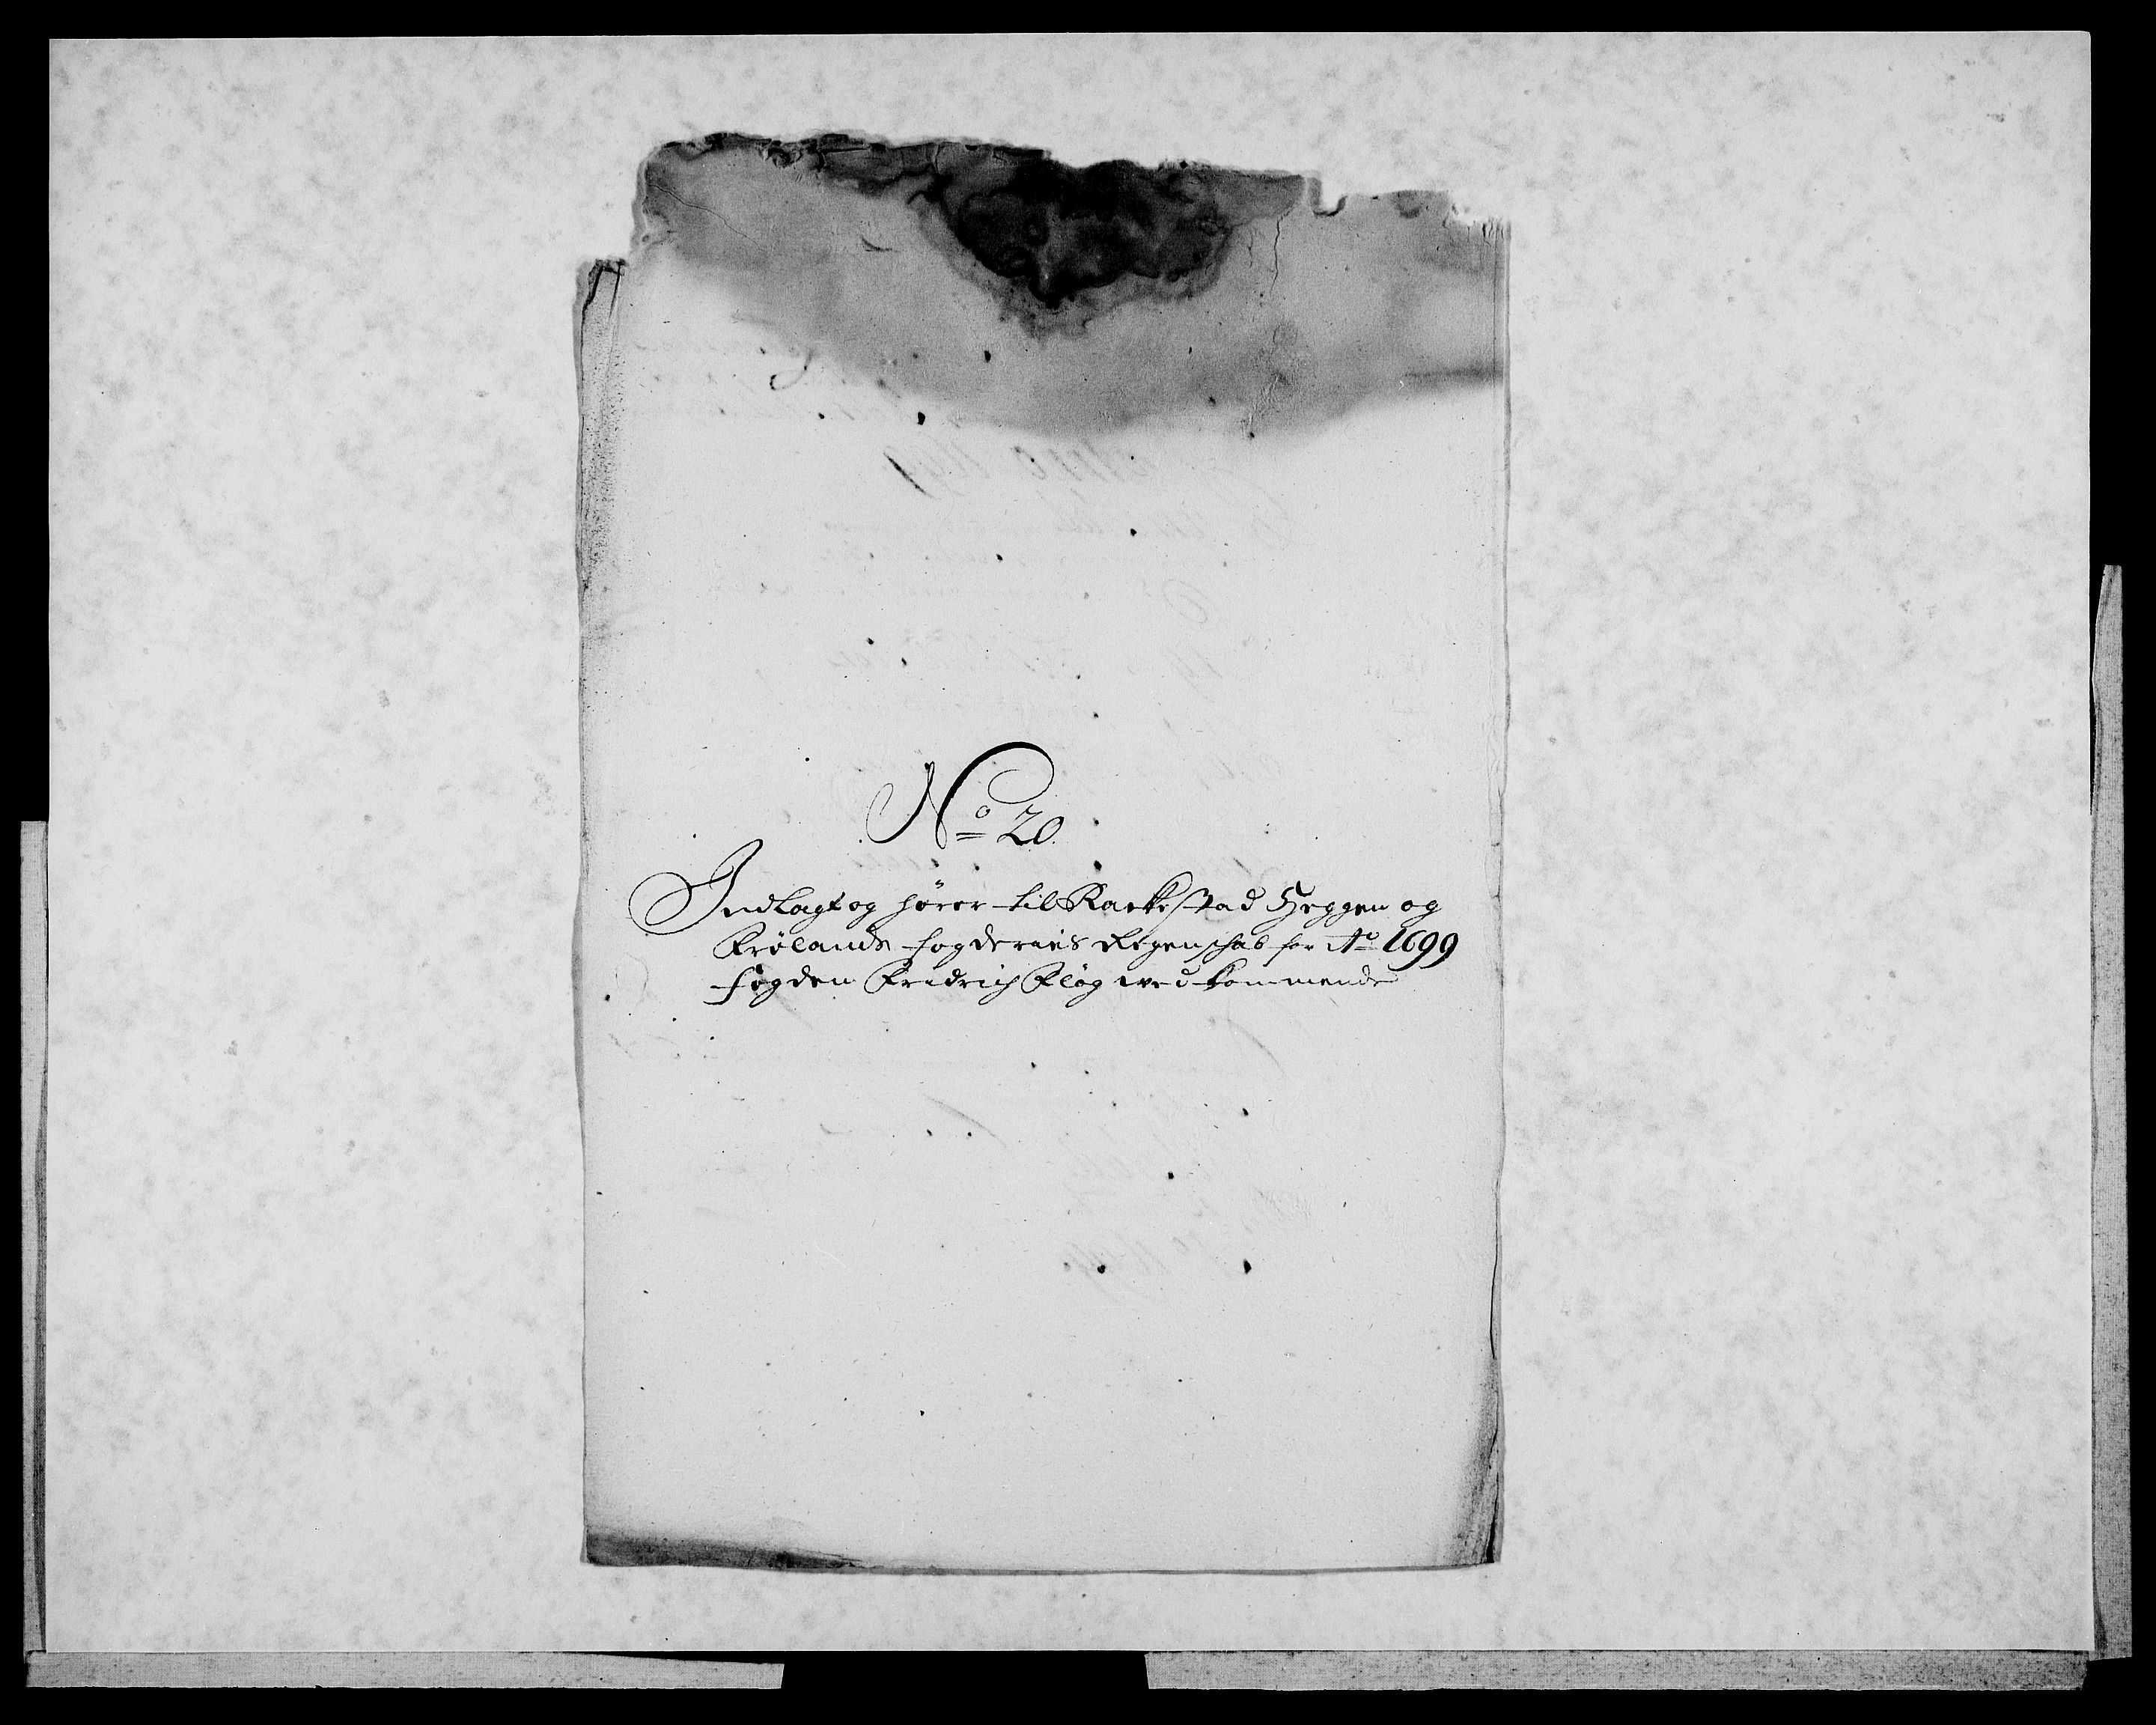 No 20
Indlagt og hører til Rackestad Heggen og
Frølands fogderies Regenschab for Ao 1699
fogden Fridrich Kløg vedkommende